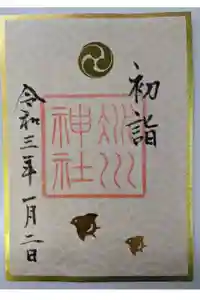 初詣
川
神社
令和三年一月二日